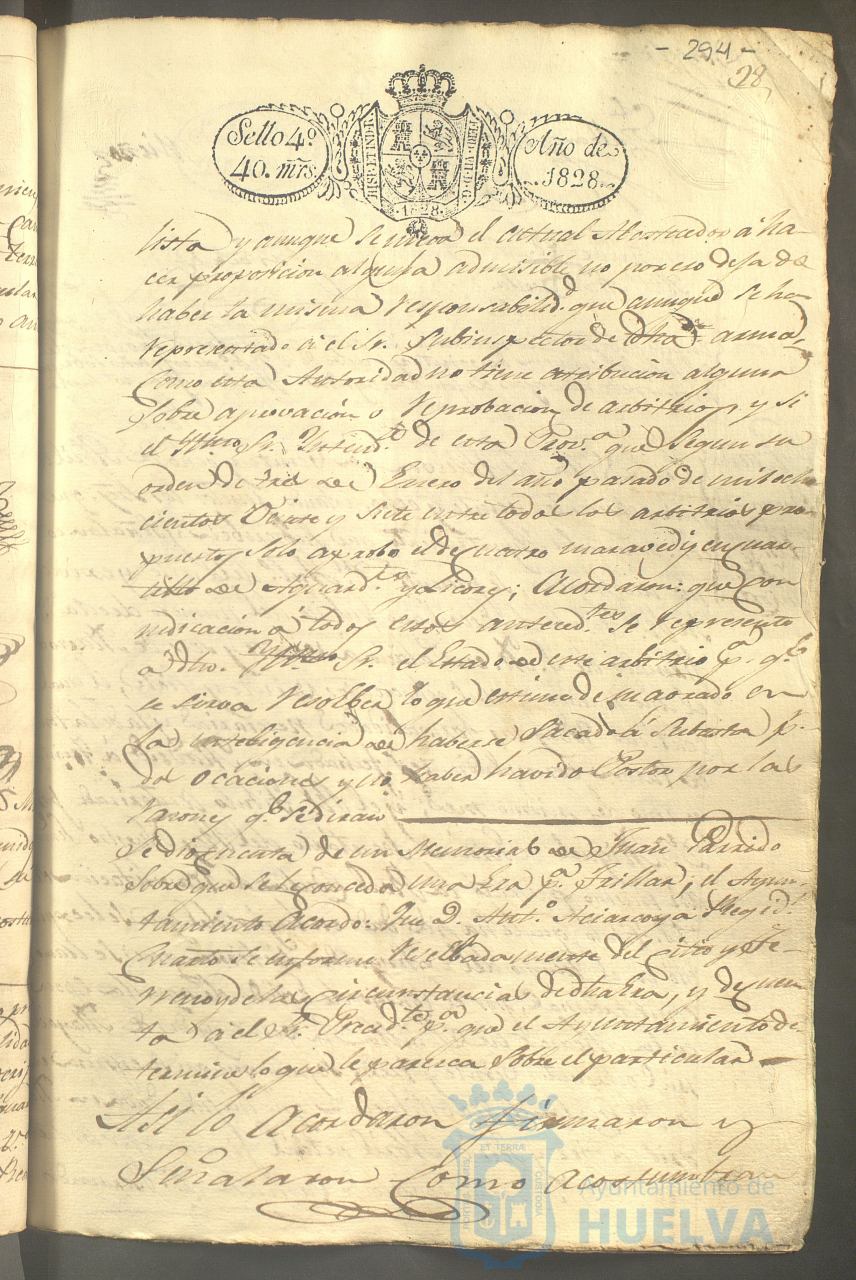 - 294 -
28
Sello 4.º
40. mrs.
HISP. ET IND. R.
1828.
Año de
1828.
lista y aunque se mueva el actual a ha-
cer proposicion alguna admisible no por eso deja de
haber la misma responsabilid.d que aunque se ha
representado á el Sr. Subinspector de dha arma,
Como esta Autoridad no tiene atribucion alguna
sobre aprovación o reprobacion de arbitrios, y si
el Yltmo Sr. Yntend.te de esta Prov.a que segun su
orden de tres de Enero del año pasado de mil ocho
cientos Veinte y Siete entre todos los arbitrios pro
puestos solo aprobo el de cuatro maravedis en cuar-
tillo de Aguard.te y Licores; Acordaron: que con
indicación á todos estos anteced.tes se represente
a dho. Yltmo Sr. el Estado de este arbitrio p.a q.e
se sirva resolber lo que estime de su agrado en
la inteligencia de haberse sacado á Subasta p.r
dos ocaciones y no haber havido Postor por las
rasones q.e se diran
Se dio cuenta de un Memorial de Juan Garrido
sobre que se le conceda una Era p.a Trillar; el Ayun-
tamiento Acordo: Que D. Ant.o Regid.r
Cuarto se informe del citio y te-
rreno y de las circunstancias de dha Era, y dé cuen
ta á el Sr. Presid.te p.a que el Ayuntamiento de-
termine lo que le paresca sobre el particular
Asi lo Acordaron firmaron y
Señalaron como acostumbran
ET TERRÆ
Ayuntamiento de
HUELVA